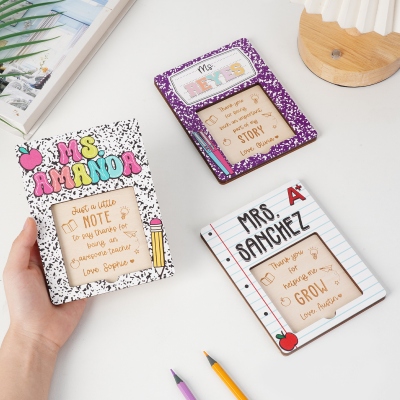 Ms.
REYES
Thank you
for being
such an important
part of my
STORY
Love, Olivia
MS.
AMANDA
Just a little
NOTE
to say thanks for
being an
awesome teacher
Love, Sophie
A+
MRS.
SANCHEZ
Thank you
for
helping me
GROW
Love, Austin